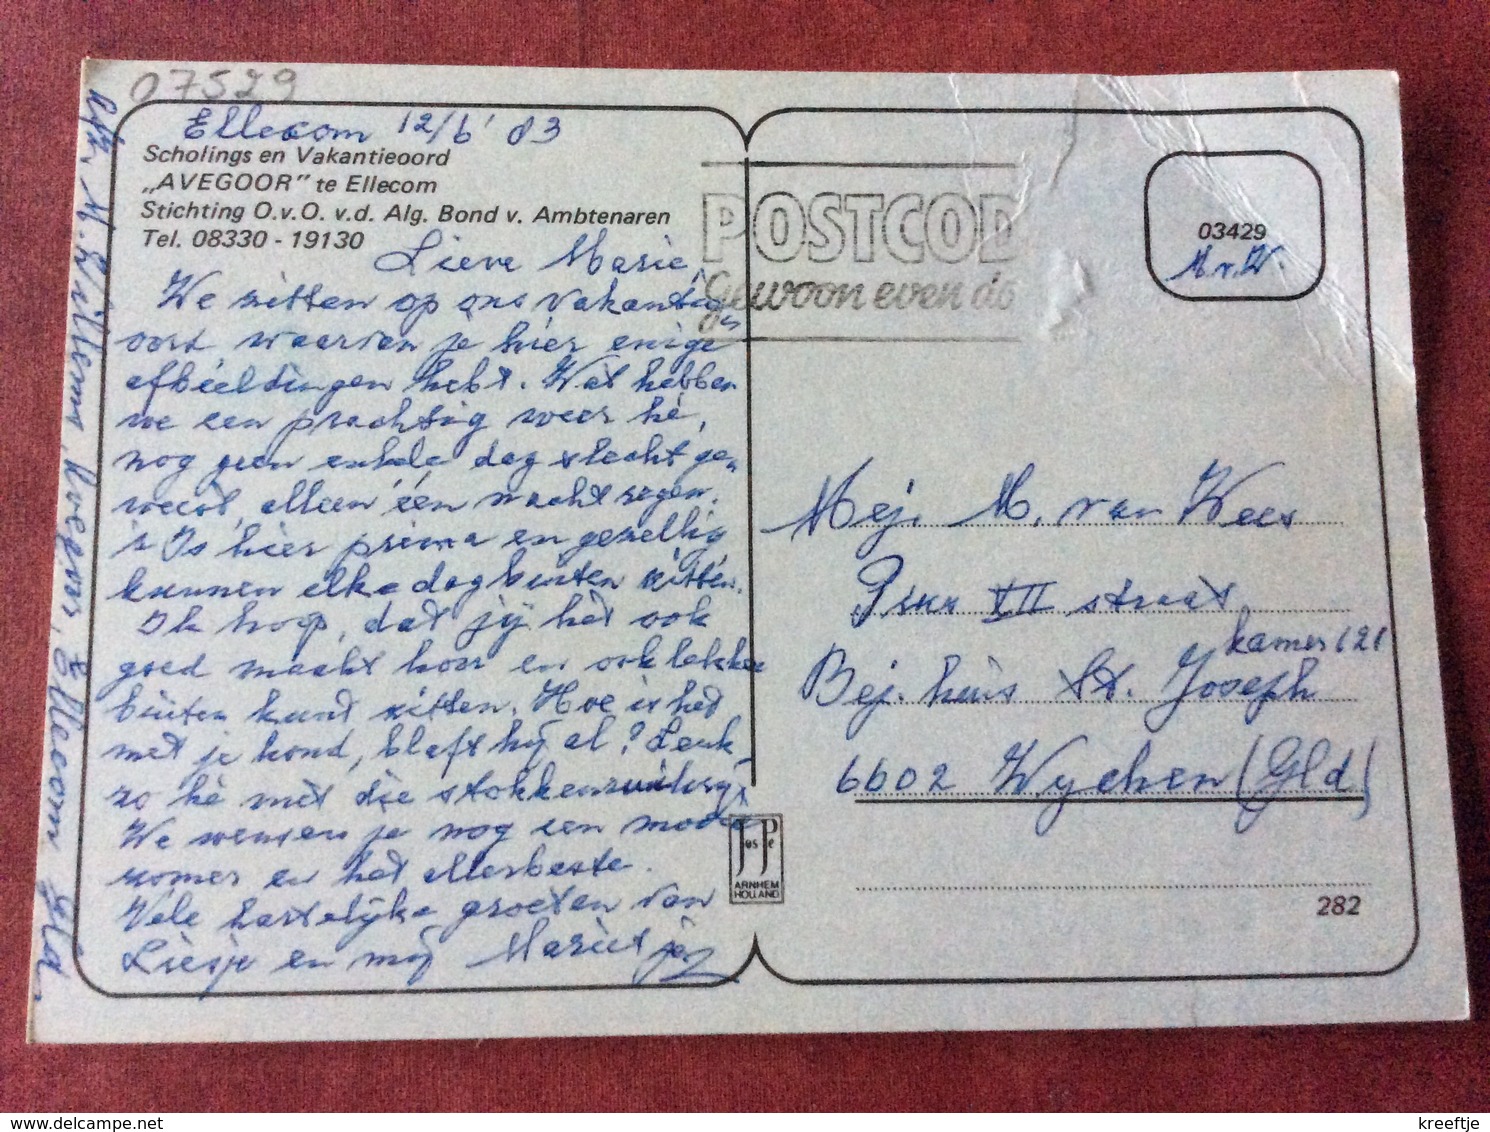 07529
Ellecom 12/6 '83
Scholings en Vakantieoord
„AVEGOOR” te Ellecom
Stichting O.v.O. v.d. Alg. Bond v. Ambtenaren
Tel. 08330 - 19130
Lieve Marie,
We zitten op ons vakantie
oord waarvan je hier enige
afbeeldingen hebt. Wat hebben
we een prachtig weer hè,
nog geen enkele dag slecht ge„
weest, alleen één nacht regen.
't Is hier prima en gezellig
kunnen elke dag buiten zitten.
Ik hoop, dat jij het ook
goed maakt hoor en ook lekker
buiten kunt zitten. Hoe is het
met je hond, blaft hij al? Leuk
zo hè met die
We wensen je nog een mooie
zomer en het allerbeste.
Vele hartelijke groeten van
Liesje en mij Marietje
Afz. M. Willems, Avegoor, Ellecom Gld.
POSTCOD
Gewoon even do
03429
M.v.W.
Mej. M. van Wees
Pius XII straat
kamer 121
Bej. huis St. Joseph
6602 Wychen (Gld)
Jos Pe
ARNHEM
HOLLAND
282
kreeftje